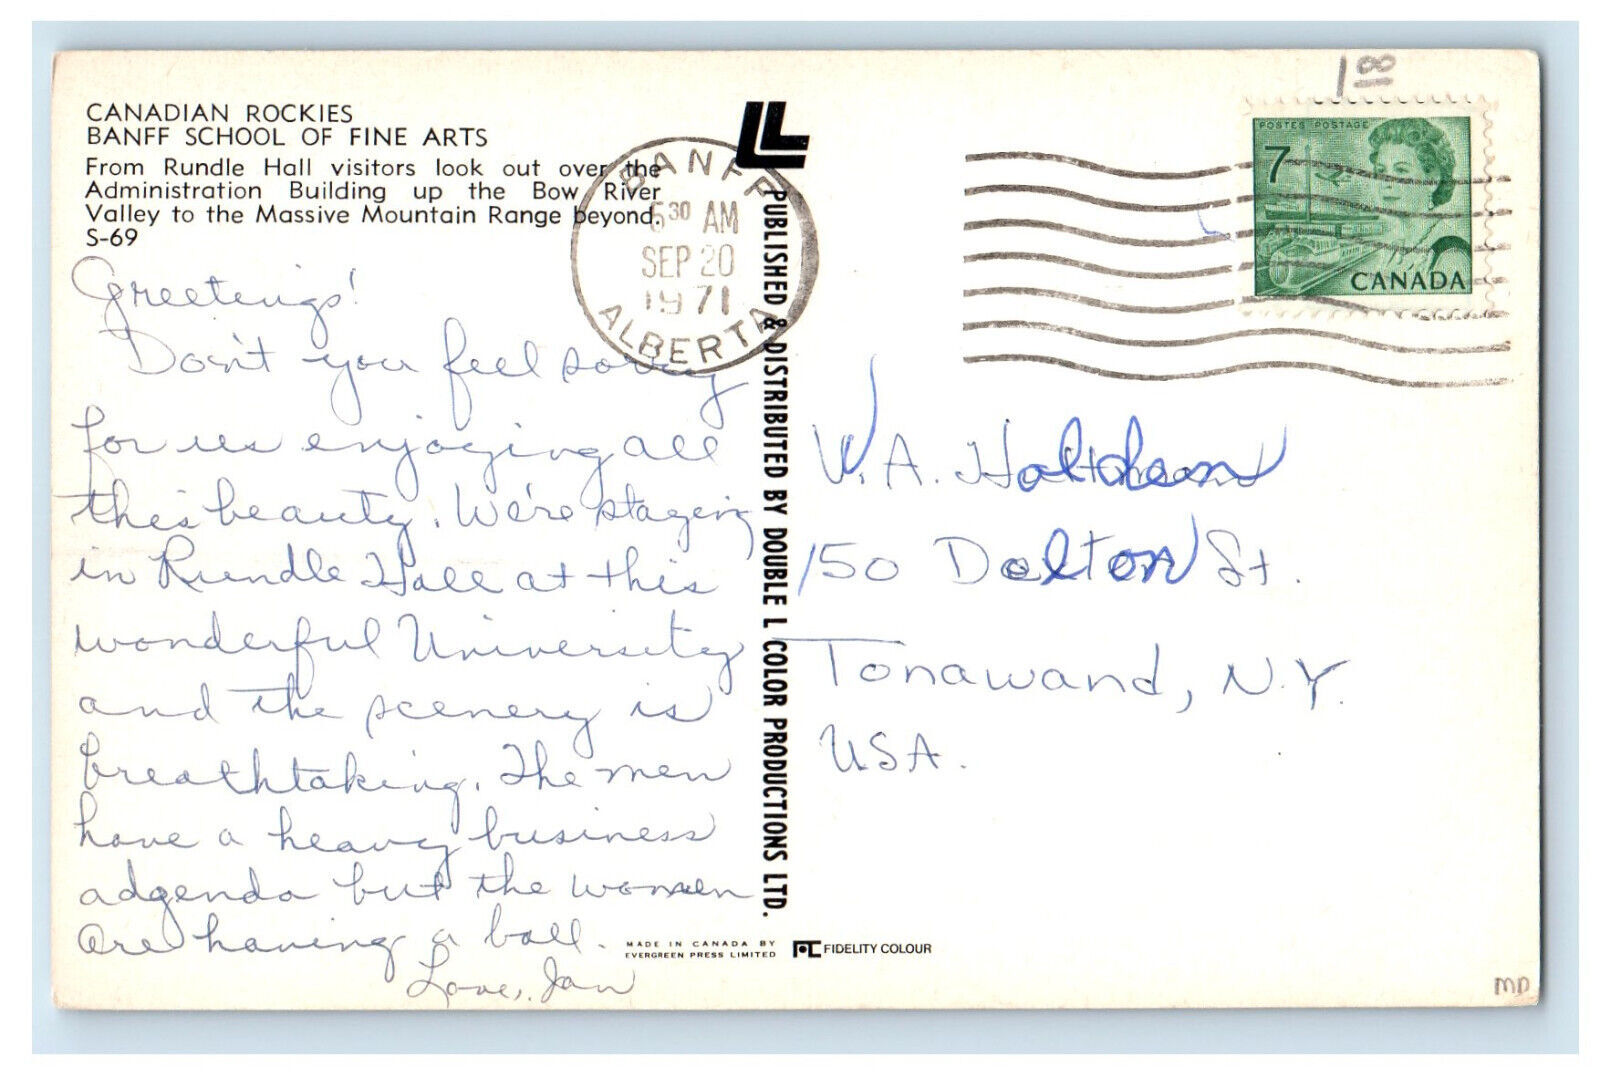 CANADIAN ROCKIES
BANFF SCHOOL OF FINE ARTS
From Rundle Hall visitors look out over the
Administration Building up the Bow River
Valley to the Massive Mountain Range beyond.
S-69
Greetings!
Don't you feel sorry
for us enjoying all
this beauty. We're staying
in Rundle Hall at this
wonderful University
and the scenery is
breathtaking. The men
have a heavy business
adgenda but the women
are having a ball.
Love, Jan
BANFF
5 30 AM
SEP 20
1971
ALBERTA
LL
PUBLISHED & DISTRIBUTED BY DOUBLE L COLOR PRODUCTIONS LTD.
MADE IN CANADA BY
EVERGREEN PRESS LIMITED
FIDELITY COLOUR
1 00
POSTES POSTAGE
7
CANADA
W.A.
150 Dalton St.
Tonawand, N.Y.
USA.
MD